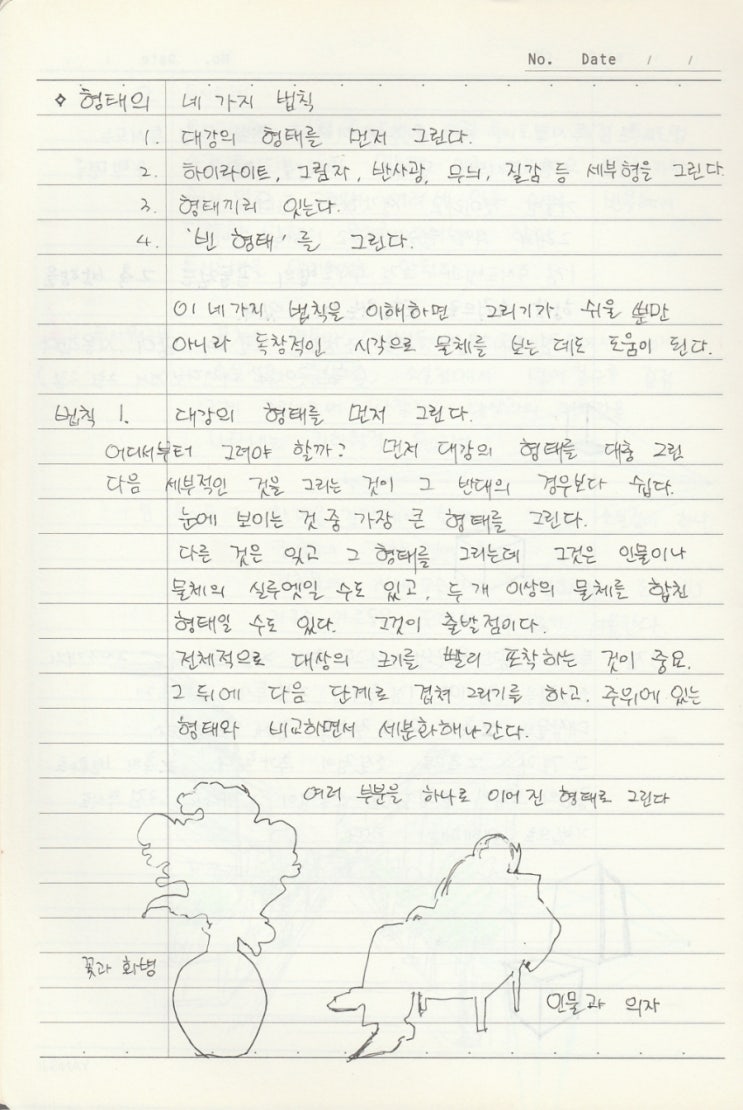 No. Date / /
◇ 형태의 네 가지 법칙
1. 대강의 형태를 먼저 그린다.
2. 하이라이트, 그림자, 반사광, 무늬, 질감 등 세부형을 그린다.
3. 형태끼리 잇는다.
4. '빈 형태'를 그린다.
이 네가지 법칙을 이해하면 그리기가 쉬울 뿐만
아니라 독창적인 시각으로 물체를 보는 데도 도움이 된다.
법칙 1. 대강의 형태를 먼저 그린다.
어디서부터 그려야 할까? 먼저 대강의 형태를 대충 그린
다음 세부적인 것을 그리는 것이 그 반대의 경우보다 쉽다.
눈에 보이는 것 중 가장 큰 형태를 그린다.
다른 것은 잊고 그 형태를 그리는데 그것은 인물이나
물체의 실루엣일 수도 있고, 두 개 이상의 물체를 합친
형태일 수도 있다. 그것이 출발점이다.
전체적으로 대상의 크기를 빨리 포착하는 것이 중요.
그 뒤에 다음 단계로 겹쳐 그리기를 하고. 주위에 있는
형태와 비교하면서 세분화해나간다.
여러 부분을 하나로 이어진 형태로 그린다
꽃과 화병
인물과 의자